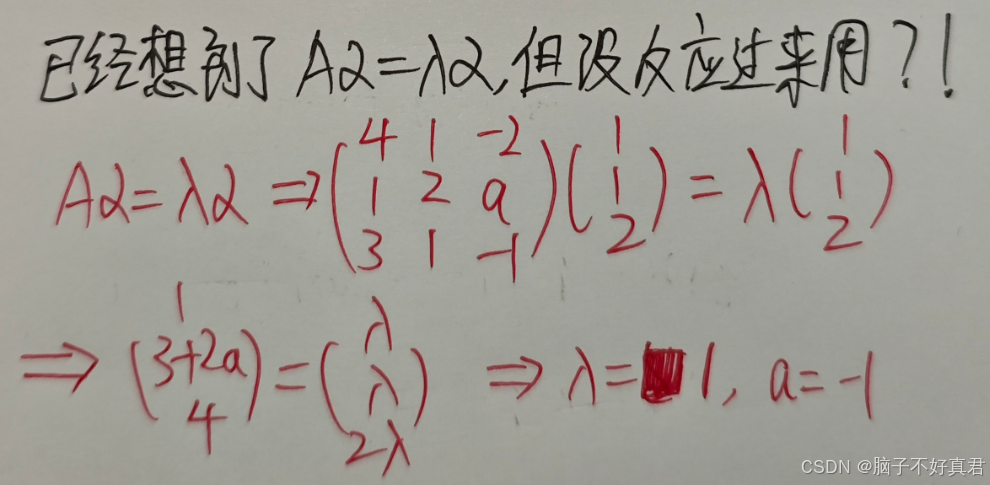 已经想到了 Aα=λα,但没反应过来用?!
Aα=λα ⇒ (4 1 -2
1 2 a
3 1 -1) (1
1
2) = λ (1
1
2)
⇒ (1
3+2a
4) = (λ
λ
2λ) ⇒ λ= 1, a=-1
CSDN @脑子不好真君